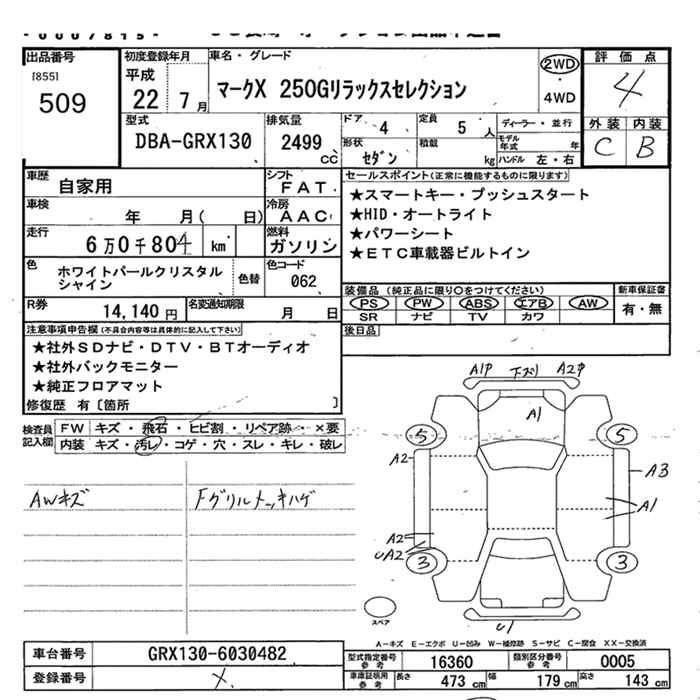 出品番号
[855]
509
初度登録年月
平成
22 7 月
車名・グレード
マークX 250Gリラックスセレクション
2WD
・
4WD
評価点
4
外装 内装
C B
型式
DBA-GRX130
排気量
2499
cc
ドア
4
定員
5 人
形状
セダン
積載
kg
ディーラー・並行
モデル年式 年
ハンドル 左・右
車歴
自家用
シフト
FAT
車検
年 月( 日)
冷房
AAC
走行
6万0千804 km
燃料
ガソリン
色
ホワイトパールクリスタル
シャイン
色替
色コード
062
R券
14,140 円
名変通知期限
月 日
セールスポイント(正常に機能するものに限ります)
★スマートキー・プッシュスタート
★HID・オートライト
★パワーシート
★ETC車載器ビルトイン
装備品(純正品に限り○をつけてください)
PS PW ABS エアB AW
SR ナビ TV カワ
新車保証書
有・無
後日品
注意事項申告欄(不具合内容等は具体的に記入して下さい)
★社外SDナビ・DTV・BTオーディオ
★社外バックモニター
★純正フロアマット
修復歴 有〔箇所 〕
検査員
記入欄
FW キズ・飛石・ヒビ割・リペア跡・×要
内装 キズ・汚レ・コゲ・穴・スレ・キレ・破レ
AWキズ
Fグリルメッキハゲ
A1P 下ズリ A2P
A1
5 5
A2
A3
A1
A2
UA2
3 3
U1
スペア
A−キズ E−エクボ U−凹み W−補修跡 S−サビ C−腐食 XX−交換済
車台番号
GRX130-6030482
登録番号
型式指定番号
参考
16360
類別区分番号
参考
0005
車庫証明用
参考
長さ 473 cm 幅 179 cm 高さ 143 cm